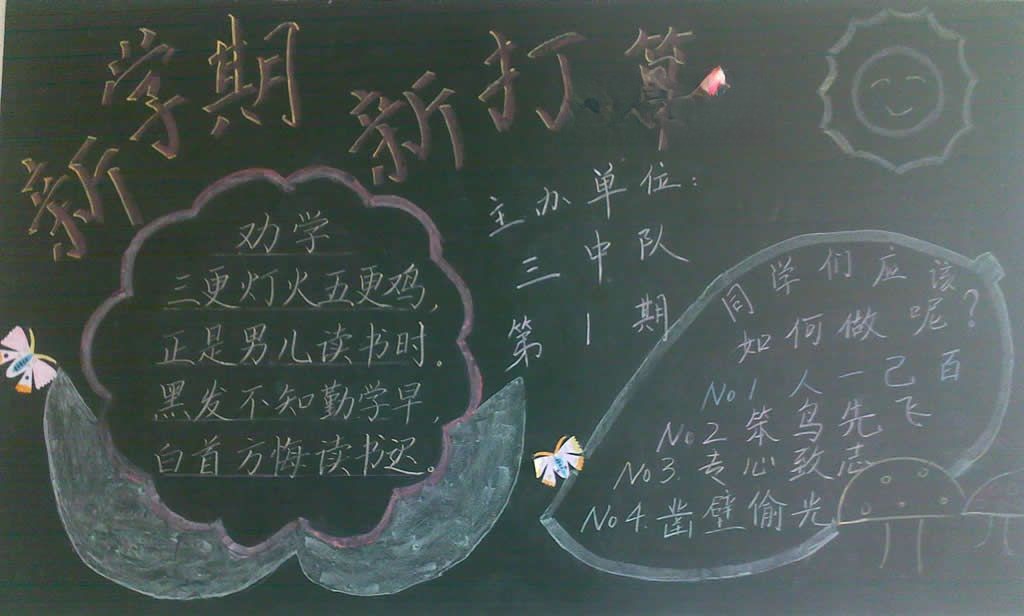 新学期 新打算
劝学
三更灯火五更鸡,
正是男儿读书时。
黑发不知勤学早,
白首方悔读书迟。
主办单位:
三中队
第1期
同学们应该
如何做呢?
No1 人一己百
No2 笨鸟先飞
No3.专心致志
No4.凿壁偷光